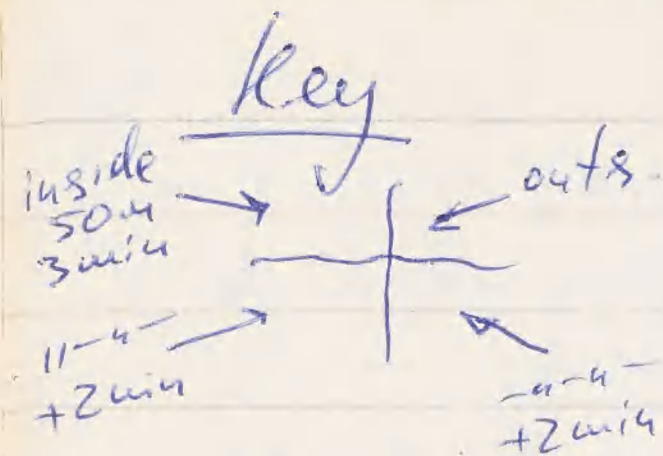 Key
inside
50m
3min
outs.
11-"-
+2min
-"-"-
+2min